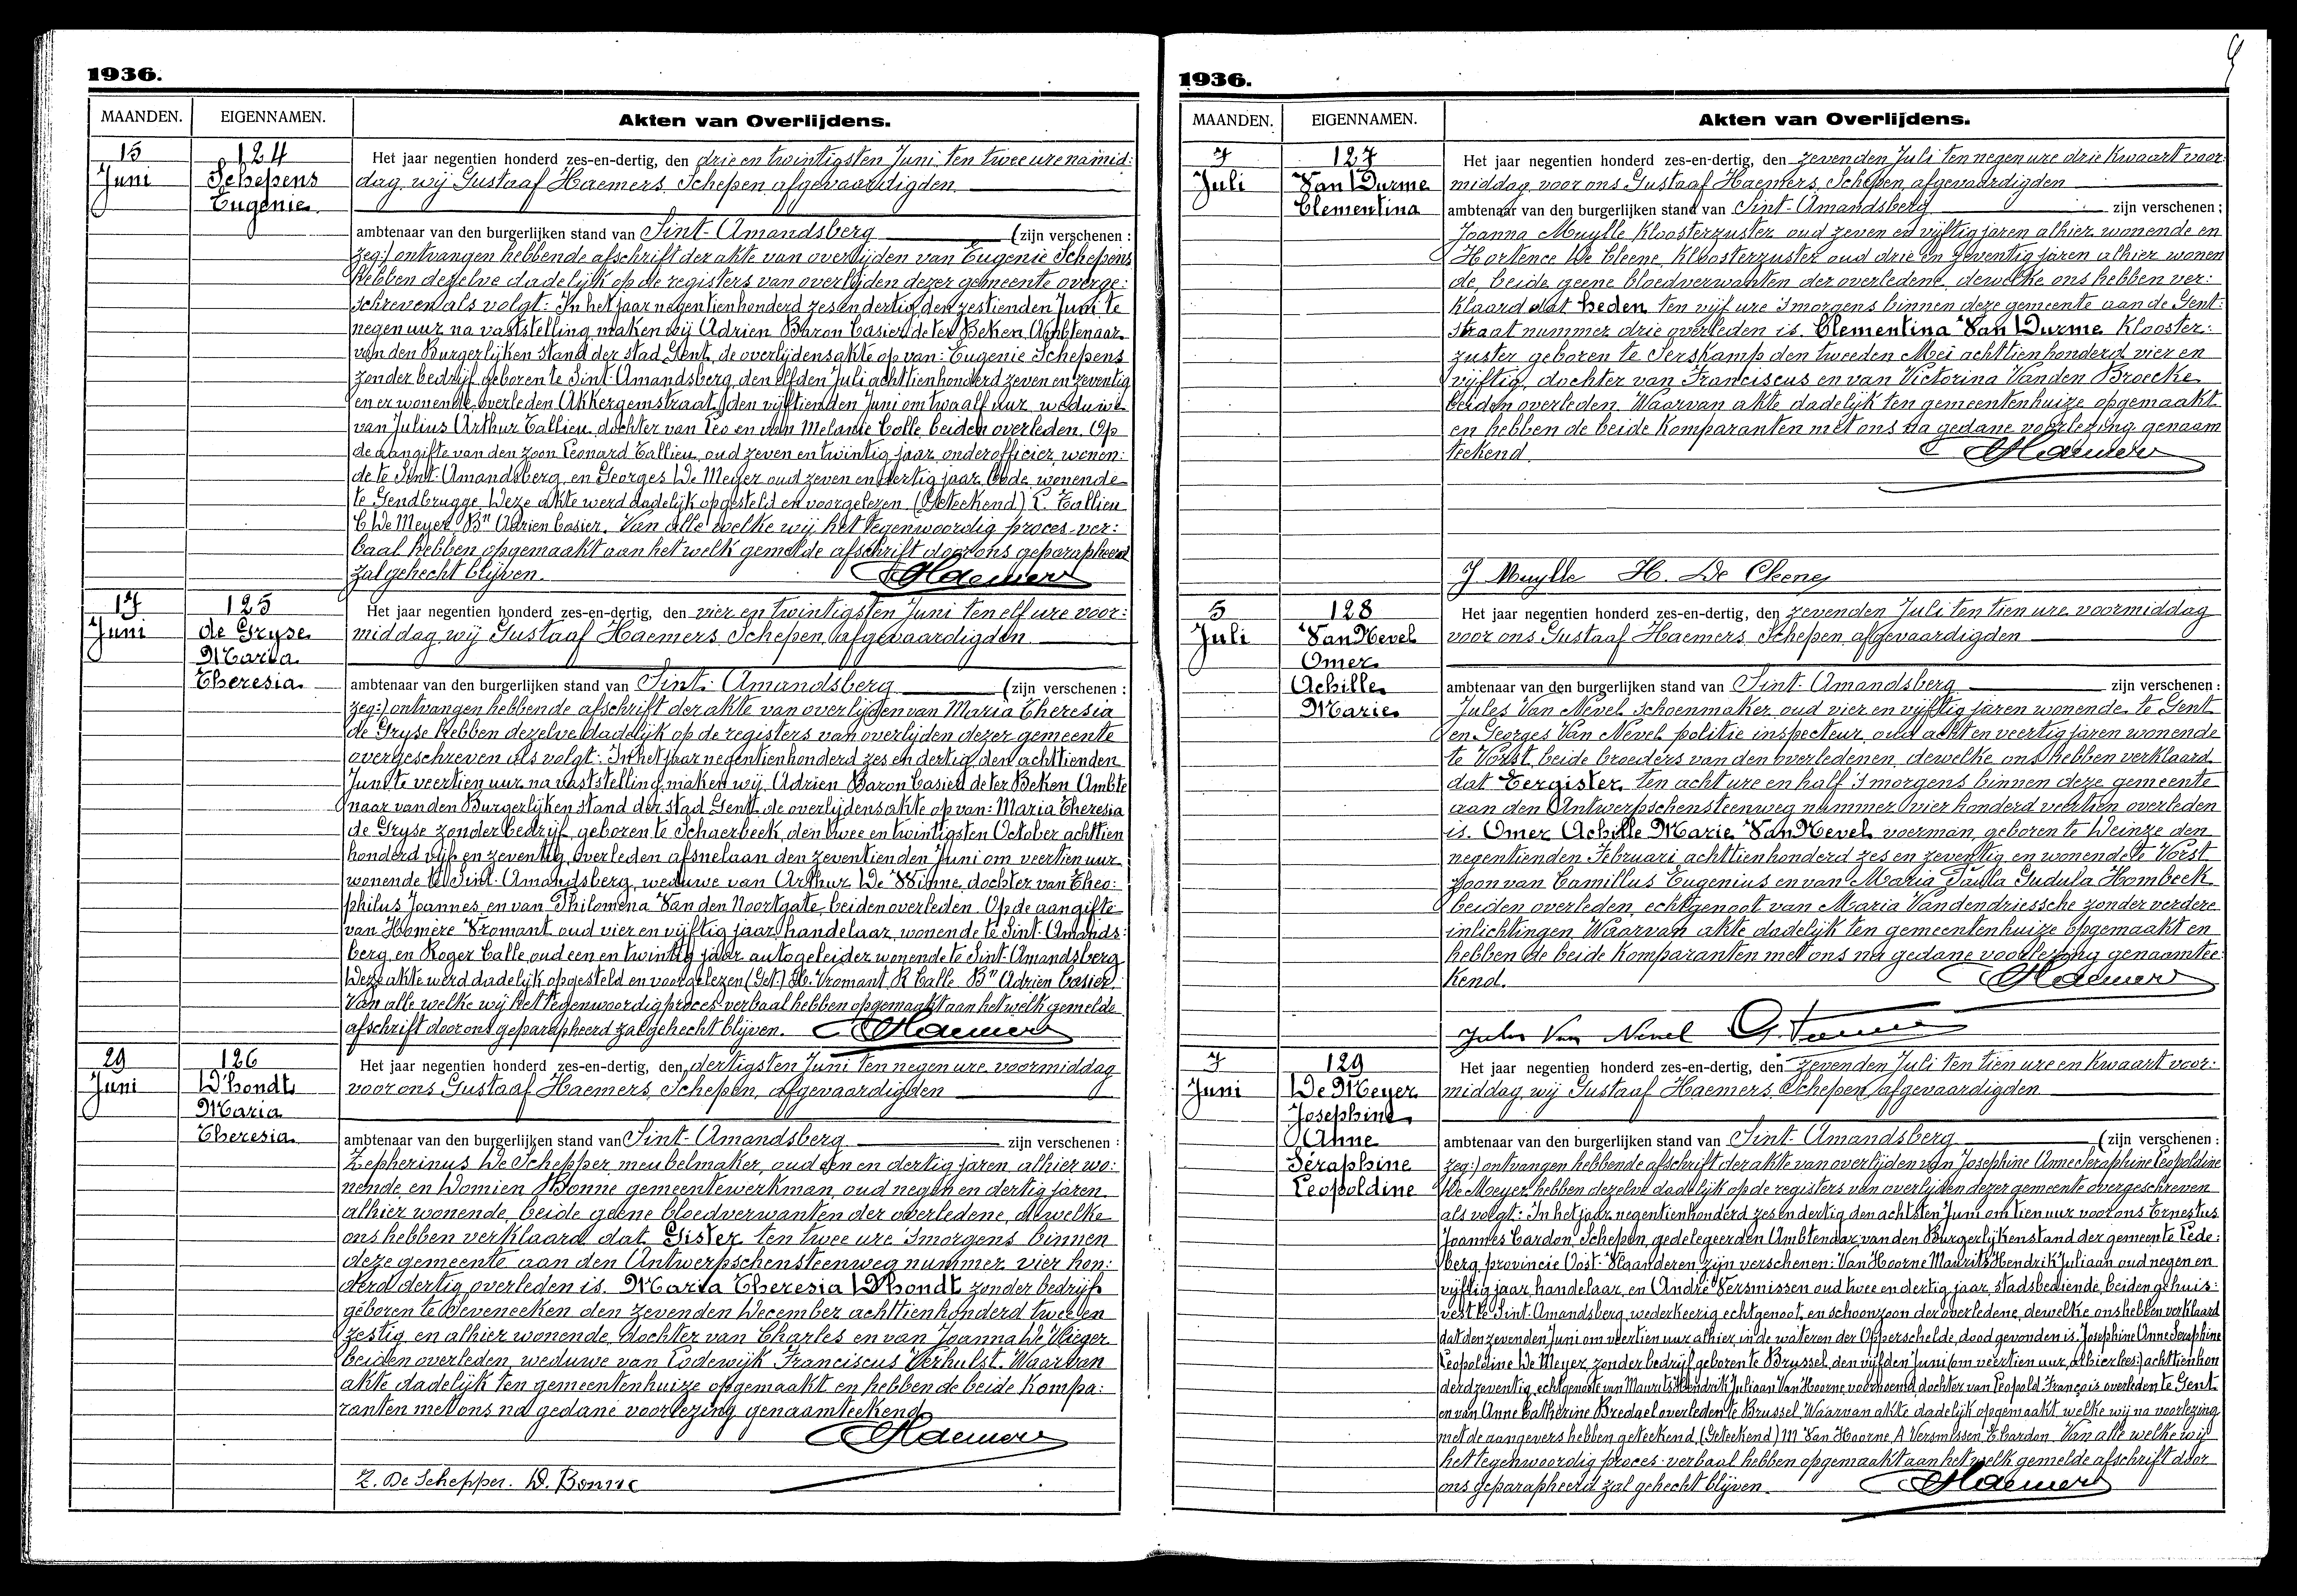 1936.
MAANDEN. EIGENNAMEN. Akten van Overlijdens.
15 124 Het jaar negentien honderd zes-en-dertig, den drie en twintigsten Juni, ten twee ure namid:
Juni Schepens dag wij Gustaaf Haemers, Schepen, afgevaardigden
Eugenie
ambtenaar van den burgerlijken stand van Sint-Amandsberg (zijn verschenen:
zeg:) ontvangen hebbende afschrift der akte van overlijden van Eugenie Schepens
hebben dezelve dadelijk op de registers van overlijden dezer gemeente overge:
schreven als volgt: In het jaar negentienhonderd zes en dertig, den zestienden Juni te
negen uur na vaststelling, maken wij Adrien Baron Casier de ter Beken Ambtenaar
van den Burgerlijken Stand der stad Gent, de overlijdensakte op van: Eugenie Schepens
zonder bedrijf, geboren te Sint-Amandsberg, den elfden Juli achttienhonderd zeven en zeventig
en er wonende, overleden (Akkergemstraat) den vijftienden Juni om twaalf uur, weduwe
van Julius Arthur Callieu, dochter van Leo en van Melanie Colle, beiden overleden. Op
de aangifte van den zoon Leonard Callieu, oud zeven en twintig jaar, onderofficier, wonen:
de te Sint-Amandsberg, en Georges De Meyer oud zeven en dertig jaar, bode, wonende
te Gendbrugge. Deze akte werd dadelijk opgesteld en voorgelezen. (Geteekend) L. Callieu
C. De Meyer Bⁿ Adrien Casier. Van alle welke wij het tegenwoordig proces-ver:
baal hebben opgemaakt aan hetwelk gemelde afschrift door ons geparapheerd
zal gehecht blijven. Haemers
17 125 Het jaar negentien honderd zes-en-dertig, den vier en twintigsten Juni ten elf ure voor:
Juni de Gryse middag wij Gustaaf Haemers, Schepen, afgevaardigden
Maria
Theresia ambtenaar van den burgerlijken stand van Sint-Amandsberg (zijn verschenen:
zeg:) ontvangen hebbende afschrift der akte van overlijden van Maria Theresia
de Gryse hebben dezelve dadelijk op de registers van overlijden dezer gemeente
overgeschreven als volgt: In het jaar negentienhonderd zes en dertig den achttienden
Juni te veertien uur na vaststelling maken wij Adrien Baron Casier de ter Beken Ambte
naar van den Burgerlijken stand der stad Gent, de overlijdensakte op van: Maria Theresia
de Gryse zonder bedrijf, geboren te Schaerbeek, den twee en twintigsten October achttien
honderd vijf en zeventig, overleden afsnelaan den zeventienden Juni om veertien uur
wonende te Sint-Amandsberg, weduwe van Arthur De Winne dochter van Theo:
philus Joannes, en van Philomena Van den Noortgate, beiden overleden. Op de aangifte
van Homère Vromant oud vier en vijftig jaar, handelaar, wonende te Sint-Amands:
berg, en Roger Calle, oud een en twintig jaar autogeleider wonende te Sint-Amandsberg
Deze akte werd dadelijk opgesteld en voorgelezen (Get.) H. Vromant R Calle Bⁿ Adrien Casier.
Van alle welke wij het tegenwoordig proces-verbaal hebben opgemaakt aan hetwelk gemelde
afschrift door ons geparapheerd zal gehecht blijven. Haemers
29 126 Het jaar negentien honderd zes-en-dertig, den dertigsten Juni ten negen ure voormiddag
Juni D'hondt voor ons Gustaaf Haemers, Schepen, afgevaardigden
Maria
Theresia ambtenaar van den burgerlijken stand van Sint-Amandsberg zijn verschenen:
Zepherinus De Schepper, meubelmaker, oud een en dertig jaren, alhier wo:
nende, en Domien Bonne gemeentewerkman, oud negen en dertig jaren
alhier wonende, beide geene bloedverwanten der overledene, dewelke
ons hebben verklaard dat Gister ten twee ure 's morgens binnen
deze gemeente aan den Antwerpschensteenweg nummer vier hon:
derd dertig overleden is, Maria Theresia D'hondt zonder bedrijf
geboren te Beveneecken den zevenden December achttienhonderd twee en
zestig, en alhier wonende, dochter van Charles en van Joanna De Vlieger
beiden overleden, weduwe van Lodewijk Franciscus Verhulst. Waarvan
akte dadelijk ten gemeentenhuize opgemaakt en hebben de beide kompa:
ranten met ons na gedane voorlezing genaamteekend
Haemers
Z. De Schepper. D. Bonne
1936.
MAANDEN. EIGENNAMEN. Akten van Overlijdens.
7 127 Het jaar negentien honderd zes-en-dertig, den zevenden Juli ten negen ure drie kwaart voor:
Juli Van Durme middag voor ons Gustaaf Haemers, Schepen, afgevaardigden
Clementina ambtenaar van den burgerlijken stand van Sint-Amandsberg zijn verschenen:
Joanna Muylle, kloosterzuster, oud zeven en vijftig jaren alhier wonende en
Hortence De Cleene, kloosterzuster oud drie en zeventig jaren alhier wonen
de, beide geene bloedverwanten der overledene, dewelke ons hebben ver:
klaard dat heden ten vijf ure 's morgens binnen deze gemeente aan de Gent:
straat nummer drie overleden is Clementina Van Durme klooster:
zuster geboren te Serskamp den tweeden Mei achttienhonderd vier en
vijftig, dochter van Franciscus en van Victorina Vanden Broecke
beiden overleden. Waarvan akte dadelijk ten gemeentenhuize opgemaakt
en hebben de beide komparanten met ons na gedane voorlezing genaam
teekend Haemers
J Muylle H. De Cleene
5 128 Het jaar negentien honderd zes-en-dertig, den zevenden Juli ten tien ure voormiddag
Juli Van Nevel voor ons Gustaaf Haemers, Schepen, afgevaardigden
Omer
Achille ambtenaar van den burgerlijken stand van Sint-Amandsberg zijn verschenen:
Marie Jules Van Nevel Schoenmaker oud vier en vijftig jaren wonende te Gent
en Georges Van Nevel politie inspecteur oud acht en veertig jaren wonende
te Vorst, beide broeders van den overledenen, dewelke ons hebben verklaard
dat Eergister ten acht ure en half 's morgens binnen deze gemeente
aan den Antwerpschensteenweg nummer vier honderd veertien overleden
is, Omer Achille Marie Van Nevel voerman, geboren te Deinze den
negentienden Februari achttienhonderd zes en zeventig en wonende te Vorst
zoon van Camillus Eugenius en van Maria Paula Gudula Hombeek
beiden overleden, echtgenoot van Maria Vandendriessche zonder verdere
inlichtingen. Waarvan akte dadelijk ten gemeentenhuize opgemaakt en
hebben de beide komparanten met ons na gedane voorlezing genaamtee:
kend. Haemers
Jules Van Nevel
7 129 Het jaar negentien honderd zes-en-dertig, den zevenden Juli ten tien ure en kwaart voor:
Juni De Meyer middag wij Gustaaf Haemers, Schepen, afgevaardigden
Josephine
Anne ambtenaar van den burgerlijken stand van Sint-Amandsberg (zijn verschenen:
Séraphine zeg:) ontvangen hebbende afschrift der akte van overlijden van Josephine Anne Seraphine Leopoldine
Leopoldine De Moeyer, hebben dezelve dadelijk op de registers van overlijden dezer gemeente overgeschreven
als volgt: In het jaar negentienhonderd zes en dertig den achtsten Juni om tien uur voor ons Ernestus
Joannes Cardon, Schepen, gedelegeerden Ambtenaar van den Burgerlijkenstand der gemeente Lede:
berg, provincie Oost-Vlaanderen, zijn verschenen: Van Hoorne Maurits Hendrik Juliaan oud negen en
vijftig jaar handelaar, en André Versmissen oud twee en dertig jaar, stadsbediende, beiden gehuis:
vest te Sint-Amandsberg, wederkeerig echtgenoot, en schoonzoon der overledene, dewelke ons hebben verklaard
dat den zevenden Juni om veertien uur alhier, in de wateren der Opperschelde, dood gevonden is, Josephine Anne Seraphine
Leopoldine De Meyer, zonder bedrijf, geboren te Brussel, den vijfden Juni (om veertien uur, alhier lees:) achttienhon
derd zeventig, echtgenoote van Maurits Hendrik Juliaan Van Hoorne, voornoemd, dochter van Leopold François overleden te Gent
en van Anne Catherine Bredael overleden te Brussel. Waarvan akte dadelijk opgemaakt welke wij na voorlezing
met de aangevers hebben geteekend. (Geteekend) M Van Hoorne, A Versmissen, E. Cardon. Van alle welke wij
het tegenwoordig proces-verbaal hebben opgemaakt aan hetwelk gemelde afschrift door
ons geparapheerd zal gehecht blijven. Haemers